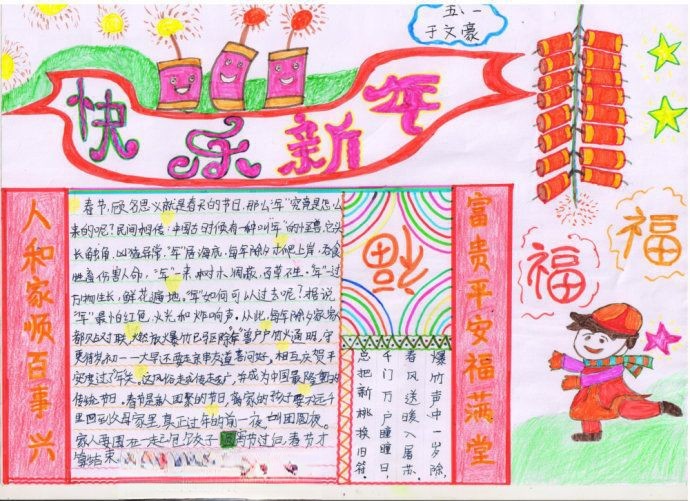 五、一
于文豪
快乐新年
人和家顺百事兴
春节,顾名思义就是春天的节日,那么"年"究竟是怎么
来的呢?民间相传,中国古时候有一种叫"年"的怪兽,它头
长角,凶猛异常,"年"居海底,每年除夕才爬上岸,吞食
牲畜伤害人命,"年"一来,树木凋敝,百草不生,"年"一过
万物生长,鲜花遍地,"年"如何可以过去呢?据说
"年"最怕红色、火光和炸响声,从此,每年除夕家家
都贴对联,燃放爆竹已驱除"年"户户灯火通明,守
更待岁初一一大早还要走亲串友道喜问好,相互庆贺平
安度过了年关。
传统节日。春节是亲人团聚的节日,离家的孩子要不远千
里回到父母家里,真正过年的前一夜
家人要围在一
算结束
福
爆竹声中一岁除,
春风送暖入屠苏。
千门万户曈曈日,
总把新桃换旧符。
富贵平安福满堂
福
福